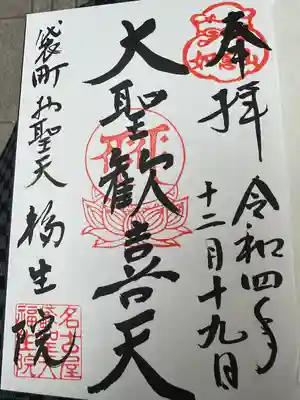 奉拝
令和四年
十二月十九日
大聖歓喜天
袋町お聖天
福生院
名古屋
福生院